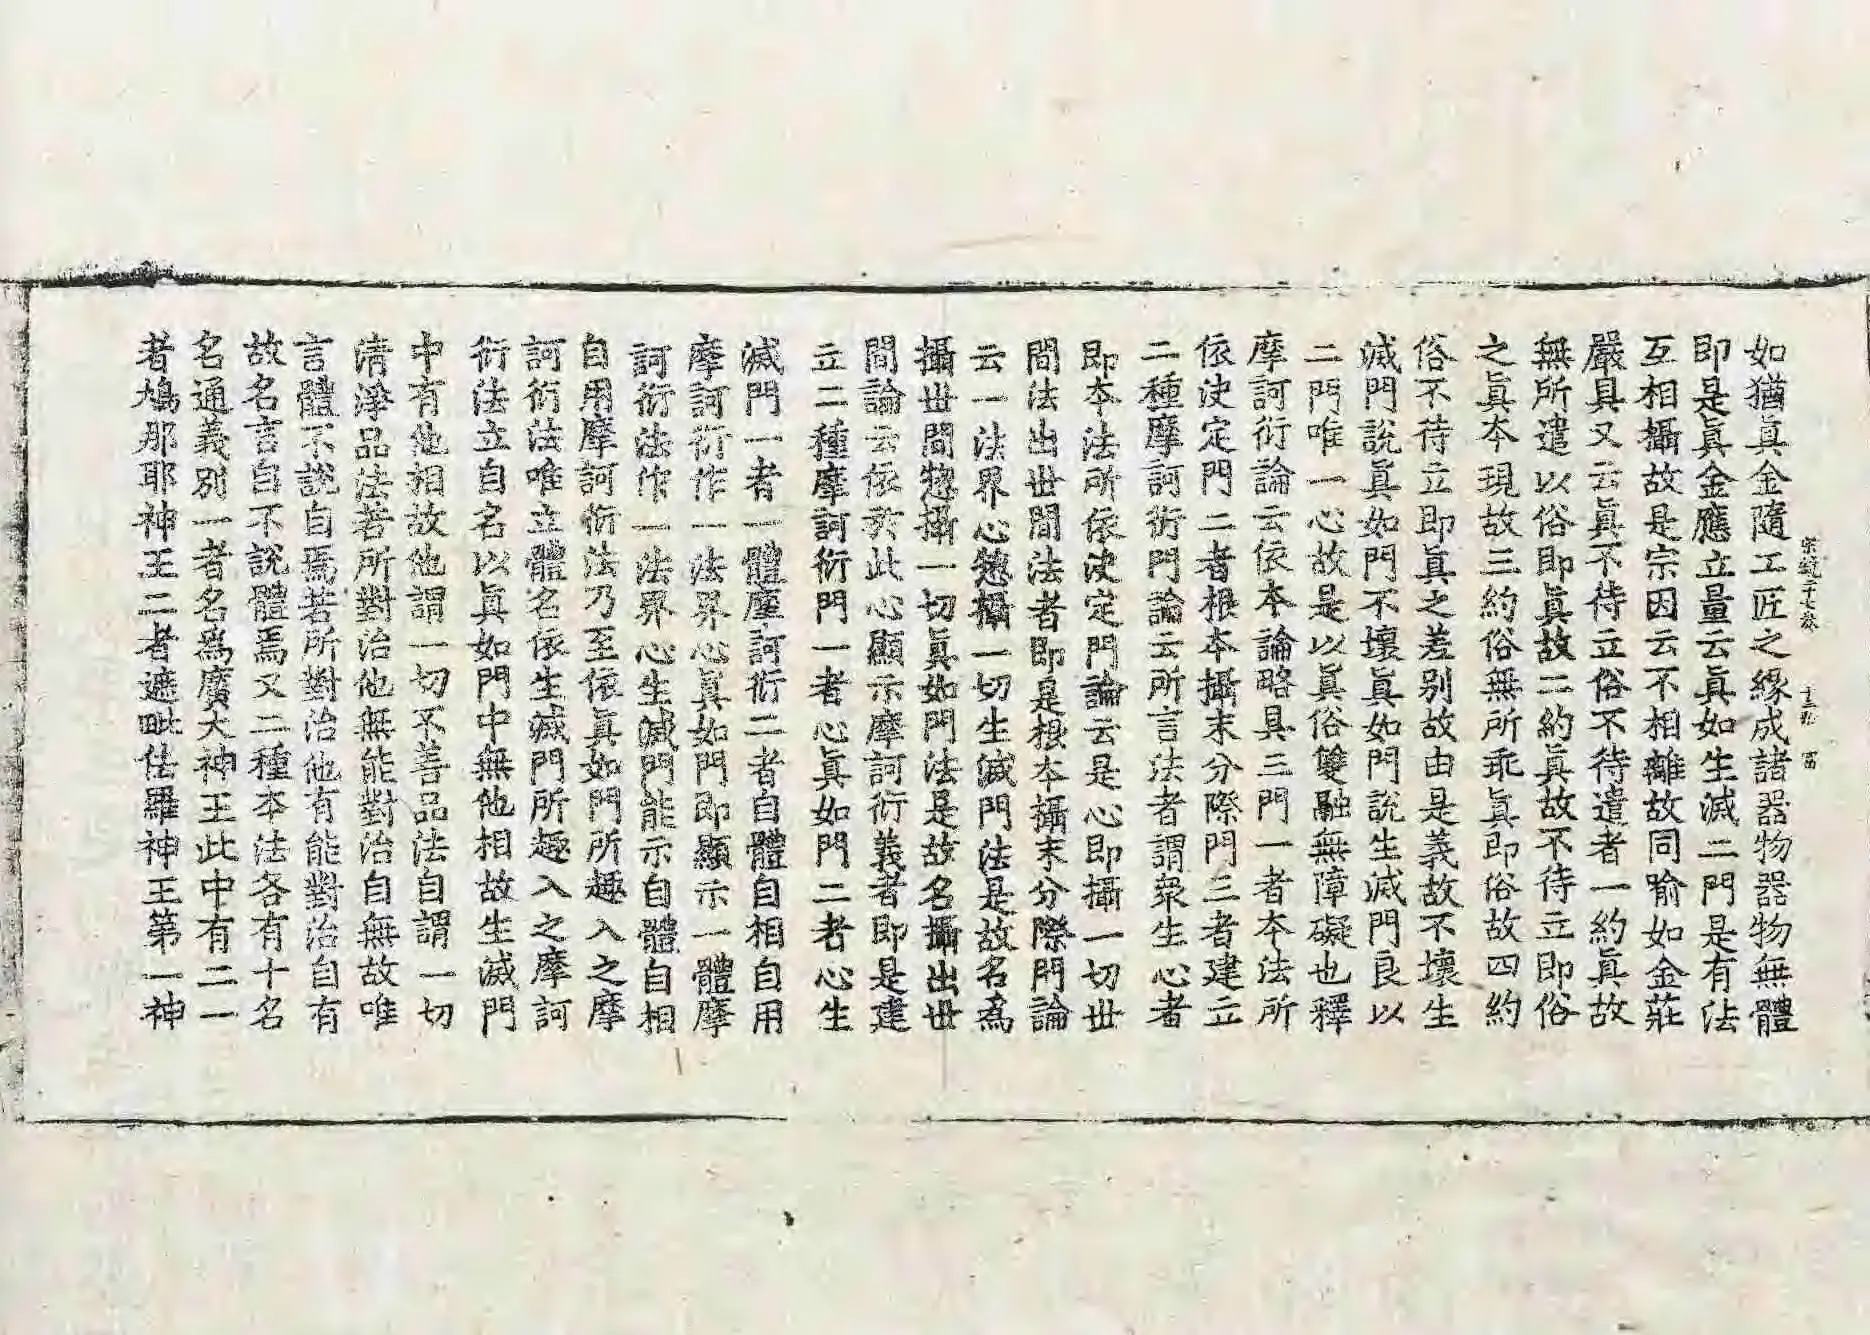 如猶眞金隨工匠之緣成諸器物器物無體
宗鏡二十七卷 十三張 富
即是眞金應立量云眞如生滅二門是有法
互相攝故是宗因云不相離故同喻如金莊
嚴具又云眞不待立俗不待遣者一約眞故
無所遣以俗即眞故二約眞故不待立即俗
之眞本現故三約俗無所乖眞即俗故四約
俗不待立即眞之差別故由是義故不壞生
滅門說眞如門不壞眞如門說生滅門良以
二門唯一心故是以眞俗雙融無障礙也釋
摩訶衍論云依本論略具三門一者本法所
依决定門二者根本攝末分際門三者建立
二種摩訶衍門論云所言法者謂衆生心者
即本法所依决定門論云是心即攝一切世
間法出世間法者即是根本攝末分際門論
云一法界心惣攝一切生滅門法是故名爲
攝世間惣攝一切眞如門法是故名攝出世
間論云依於此心顯示摩訶衍義者即是建
立二種摩訶衍門一者心眞如門二者心生
滅門一者一體摩訶衍二者自體自相自用
摩訶衍作一法界心眞如門即顯示一體摩
訶衍法作一法界心生滅門能示自體自相
自用摩訶衍法乃至依眞如門所趣入之摩
訶衍法唯立體名依生滅門所趣入之摩訶
衍法立自名以眞如門中無他相故生滅門
中有他相故他謂一切不善品法自謂一切
清淨品法若所對治他無能對治自無故唯
言體不說自焉若所對治他有能對治自有
故名言自不說體焉又二種本法各有十名
名通義別一者名爲廣大神王此中有二一
者鳩那耶神王二者遮毗佉羅神王第一神